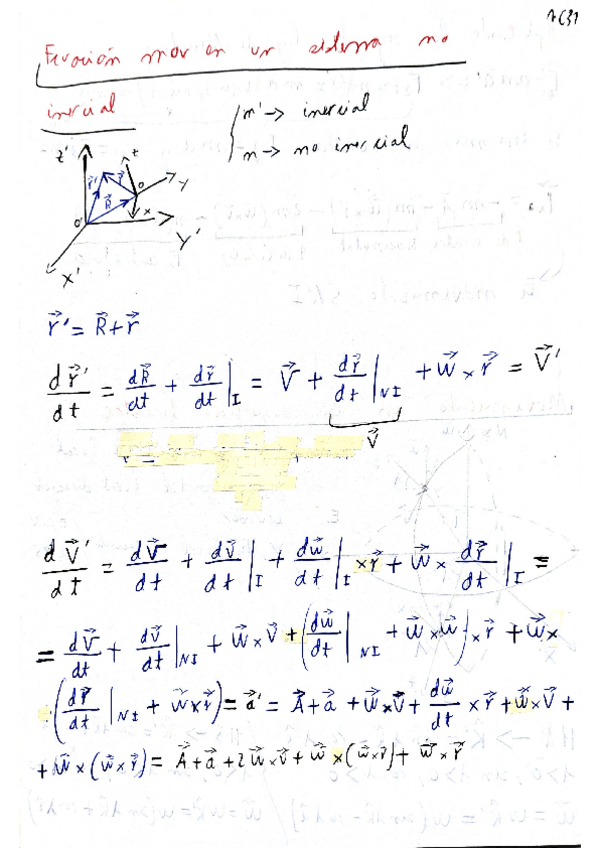 1(3)
Ecuación mov en un sistema no
inercial
m' → inercial
m → no inercial
z' z
r⃗' r⃗ O Y
O' R⃗ x
Y'
X'
r⃗' = R⃗ + r⃗
dr⃗'/dt = dR⃗/dt + dr⃗/dt|I = V⃗ + dr⃗/dt|NI + w⃗ × r⃗ = V⃗'
v⃗
dV⃗'/dt = dV⃗/dt + dv⃗/dt|I + dw⃗/dt|I × r⃗ + w⃗ × dr⃗/dt|I =
= dV⃗/dt + dv⃗/dt|NI + w⃗ × v⃗ + (dw⃗/dt|NI + w⃗ × w⃗) × r⃗ + w⃗ ×
· (dr⃗/dt|NI + w⃗ × r⃗) = a⃗' = A⃗ + a⃗ + w⃗ × v⃗ + dw⃗/dt × r⃗ + w⃗ × v⃗ +
+ w⃗ × (w⃗ × r⃗) = A⃗ + a⃗ + 2w⃗ × v⃗ + w⃗ × (w⃗ × r⃗) + w⃗ × r⃗